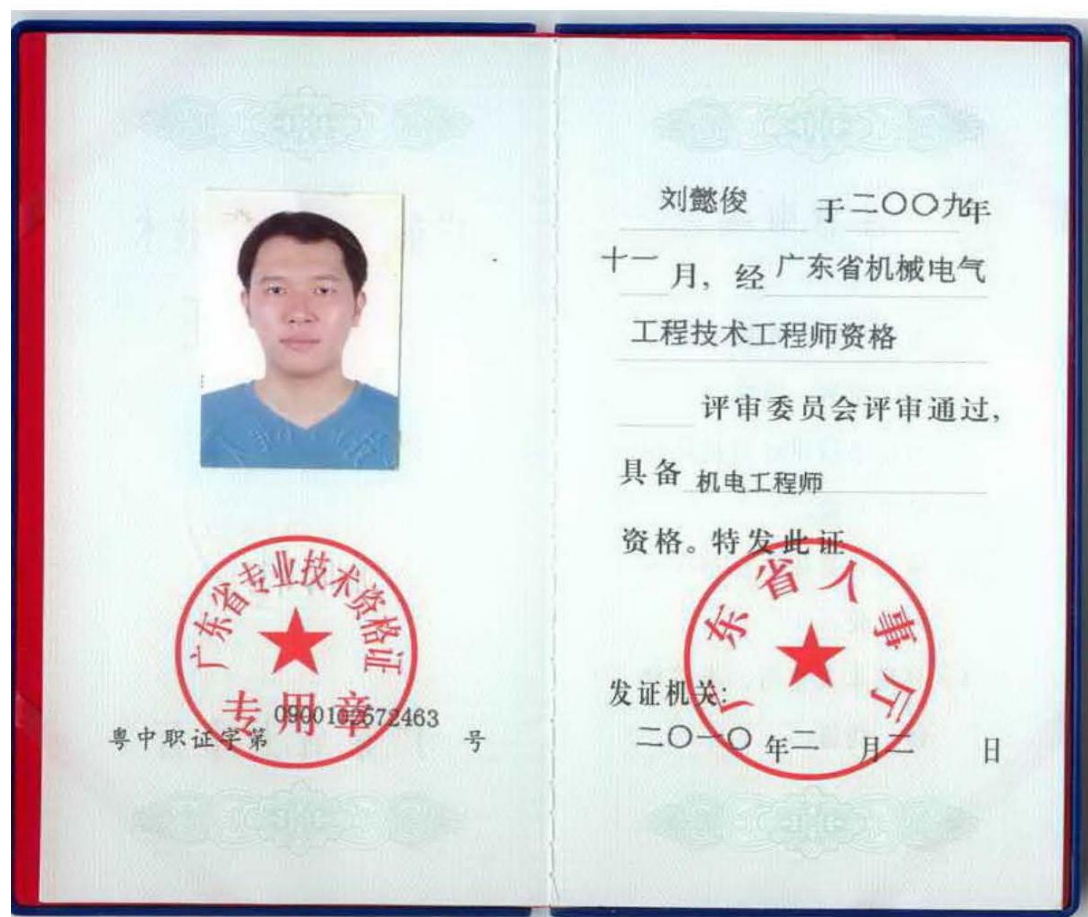 广东省专业技术资格证
专用章
粤中职证字第0900102572463号
刘懿俊 于二〇〇九年
十一月，经广东省机械电气
工程技术工程师资格
评审委员会评审通过，
具备 机电工程师
资格。特发此证
广东省人事厅
发证机关：
二〇一〇年二月二日